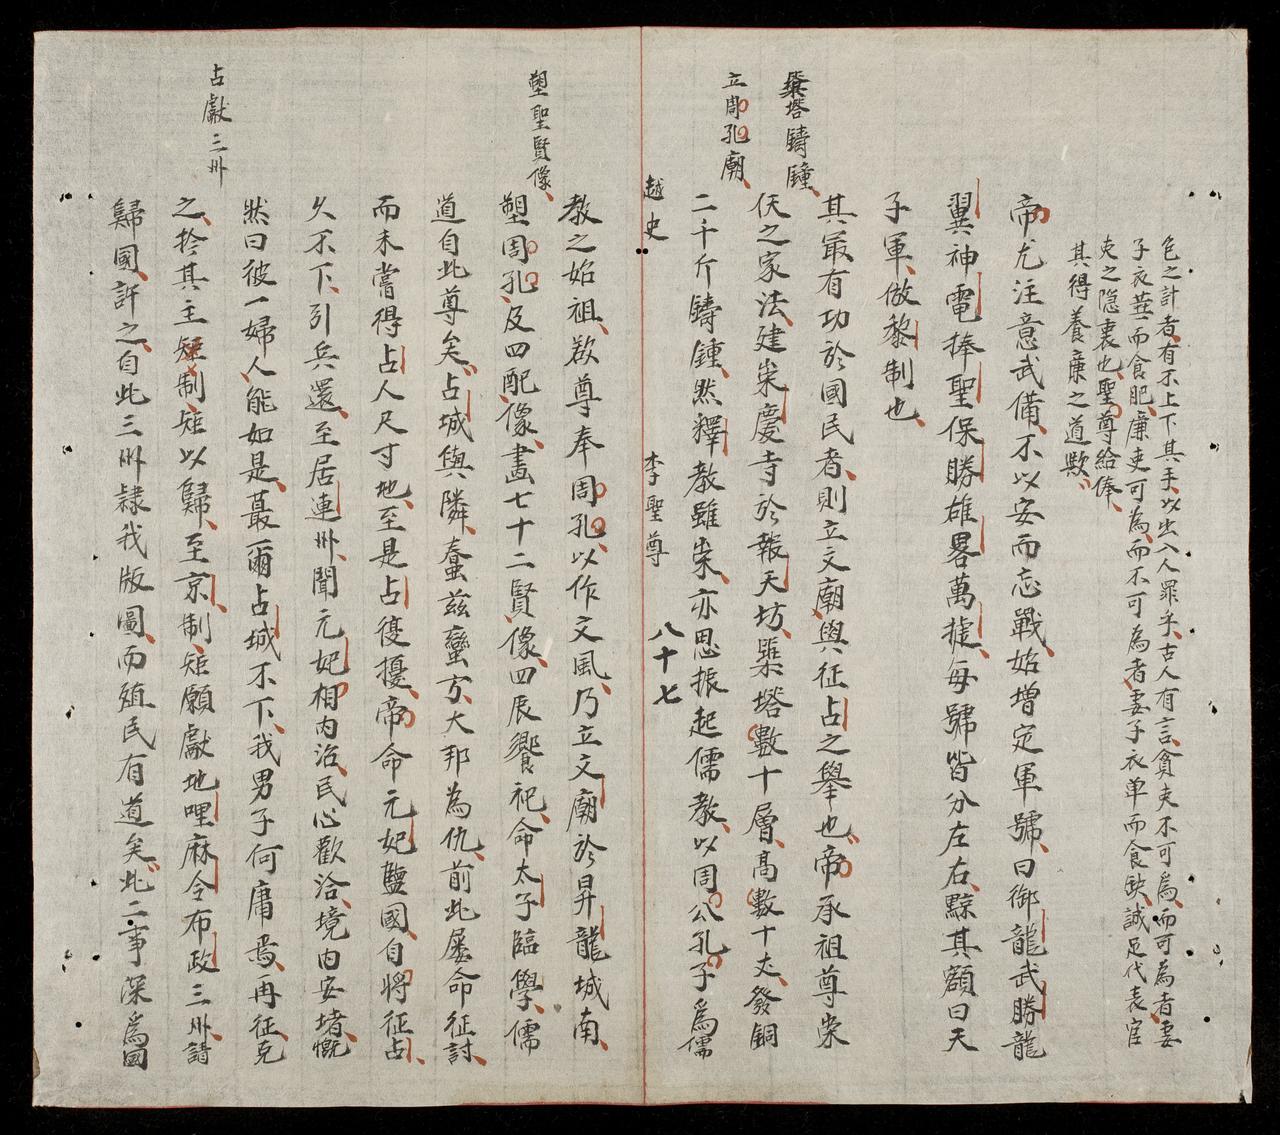 築塔鑄鐘
立周孔廟
塑聖賢像
占獻三州
包之計者有不上下其手以出入人罪乎古人有言貪吏不可為而可為者妻
子衣英而食肥廉吏可為而不可為者妻子衣单而食缺誠足代表官
吏之隐衷也聖尊給俸
其得養廉之道歟
帝尤注意武備不以安而忘戰始增定軍號曰御龍武勝龍
翼神電捧聖保勝雄畧萬捷每號皆分左右黥其額曰天
子軍倣黎制也
其最有功於國民者則立文廟與征占之舉也帝承祖尊崇
佚之家法建崇慶寺於報天坊築塔數十層高數十丈發銅
二千斤鑄鍾然釋教雖崇亦思振起儒教以周公孔子為儒
越史 李聖尊 八十七
教之始祖欲尊奉周孔以作文風乃立文廟於昇龍城南
塑周孔及四配像畫七十二賢像四辰饗祀命太子臨學儒
道自此尊矣占城與隣蠢兹蠻方大邦為仇前此屡命征討
而未嘗得占人尺寸地至是占復擾帝命元妃監國自將征占
久不下引兵還至居連州聞元妃相内治民心歡洽境内安堵慨
然曰彼一婦人能如是蕞爾占城不下我男子何庸焉冉征克
之於其主制矩以歸至京制矩願獻地哩麻令布政三州請
歸國許之自此三州隸我版圖而殖民有道矣此二事深為國